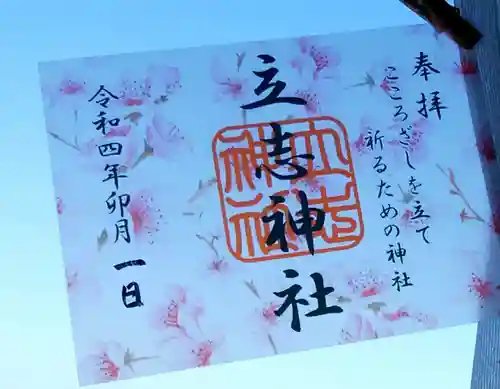 奉拝
こころざしを立て
祈るための神社
立志神社
立志神社
令和四年卯月
一日